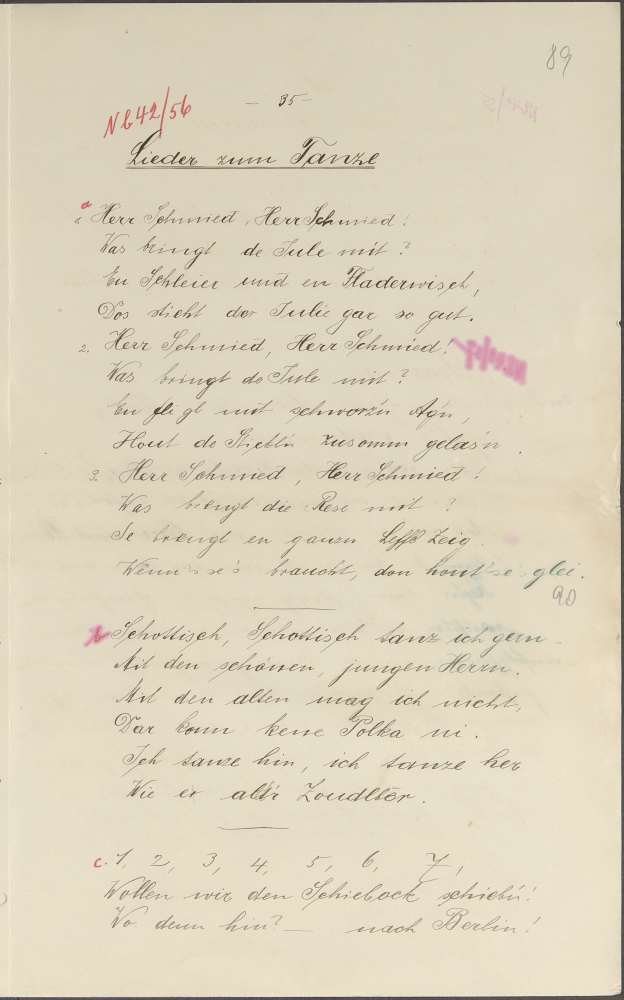 89
- 35 -
N b 42/56
Lieder zum Tanze
a
Herr Schmied, Herr Schmied!
Was bringt de Jule mit?
En Schleier und en Fladerwisch,
Dos sticht der Julie gar so gut.
2. Herr Schmied, Herr Schmied!
Was bringt de Jule mit?
En mit schworz'n Ag'n,
Hout de zusomm gelas'n.
3. Herr Schmied, Herr Schmied!
Was brengt die Rese mit?
Se brengt en ganzn Zeig.
Wenn's se's braucht, don hout se's glei.
90
b Schottisch, Schottisch tanz ich gern
Mit den schönen, jungen Herrn.
Mit den alten mag ich nicht,
Dar konn kene Polka ni.
Ich tanze hin, ich tanze her
Wie er alt'r
c. 1, 2, 3, 4, 5, 6, 7,
Wollen wir den Schiebock schieb'n!
Wo denn hin? — nach Berlin!